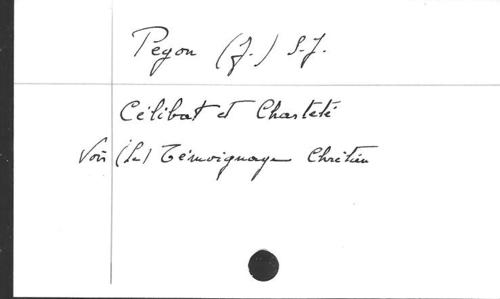 Pegon (J.) S.J.
Célibat et Chasteté
Voir (Le) Témoignage Chrétien